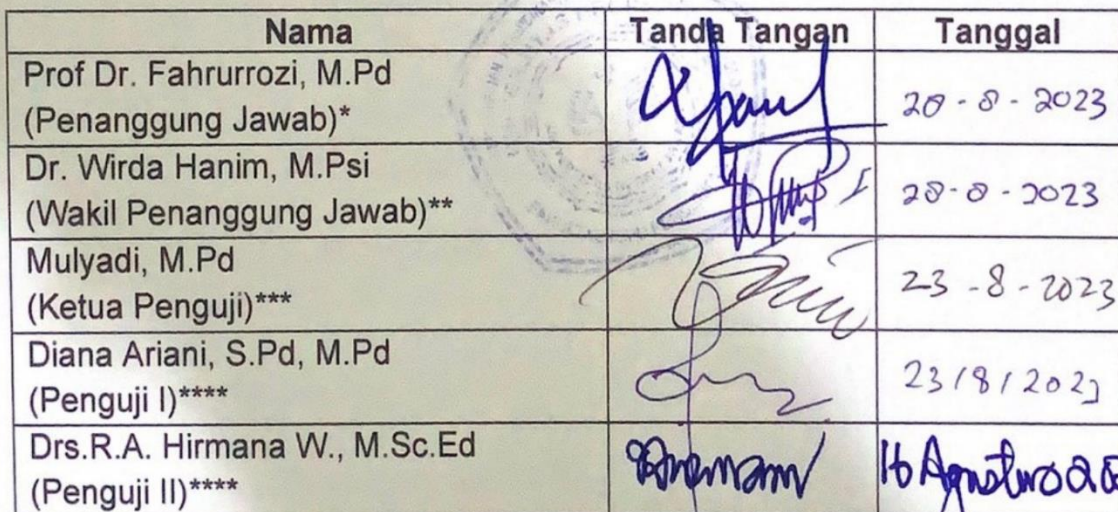 Nama Tanda Tangan Tanggal
Prof Dr. Fahrurrozi, M.Pd
(Penanggung Jawab)* 28 - 8 - 2023
Dr. Wirda Hanim, M.Psi
(Wakil Penanggung Jawab)** 28 - 8 - 2023
Mulyadi, M.Pd
(Ketua Penguji)*** 23 - 8 - 2023
Diana Ariani, S.Pd, M.Pd
(Penguji I)**** 23/8/2023
Drs.R.A. Hirmana W., M.Sc.Ed
(Penguji II)**** 16 Agustus